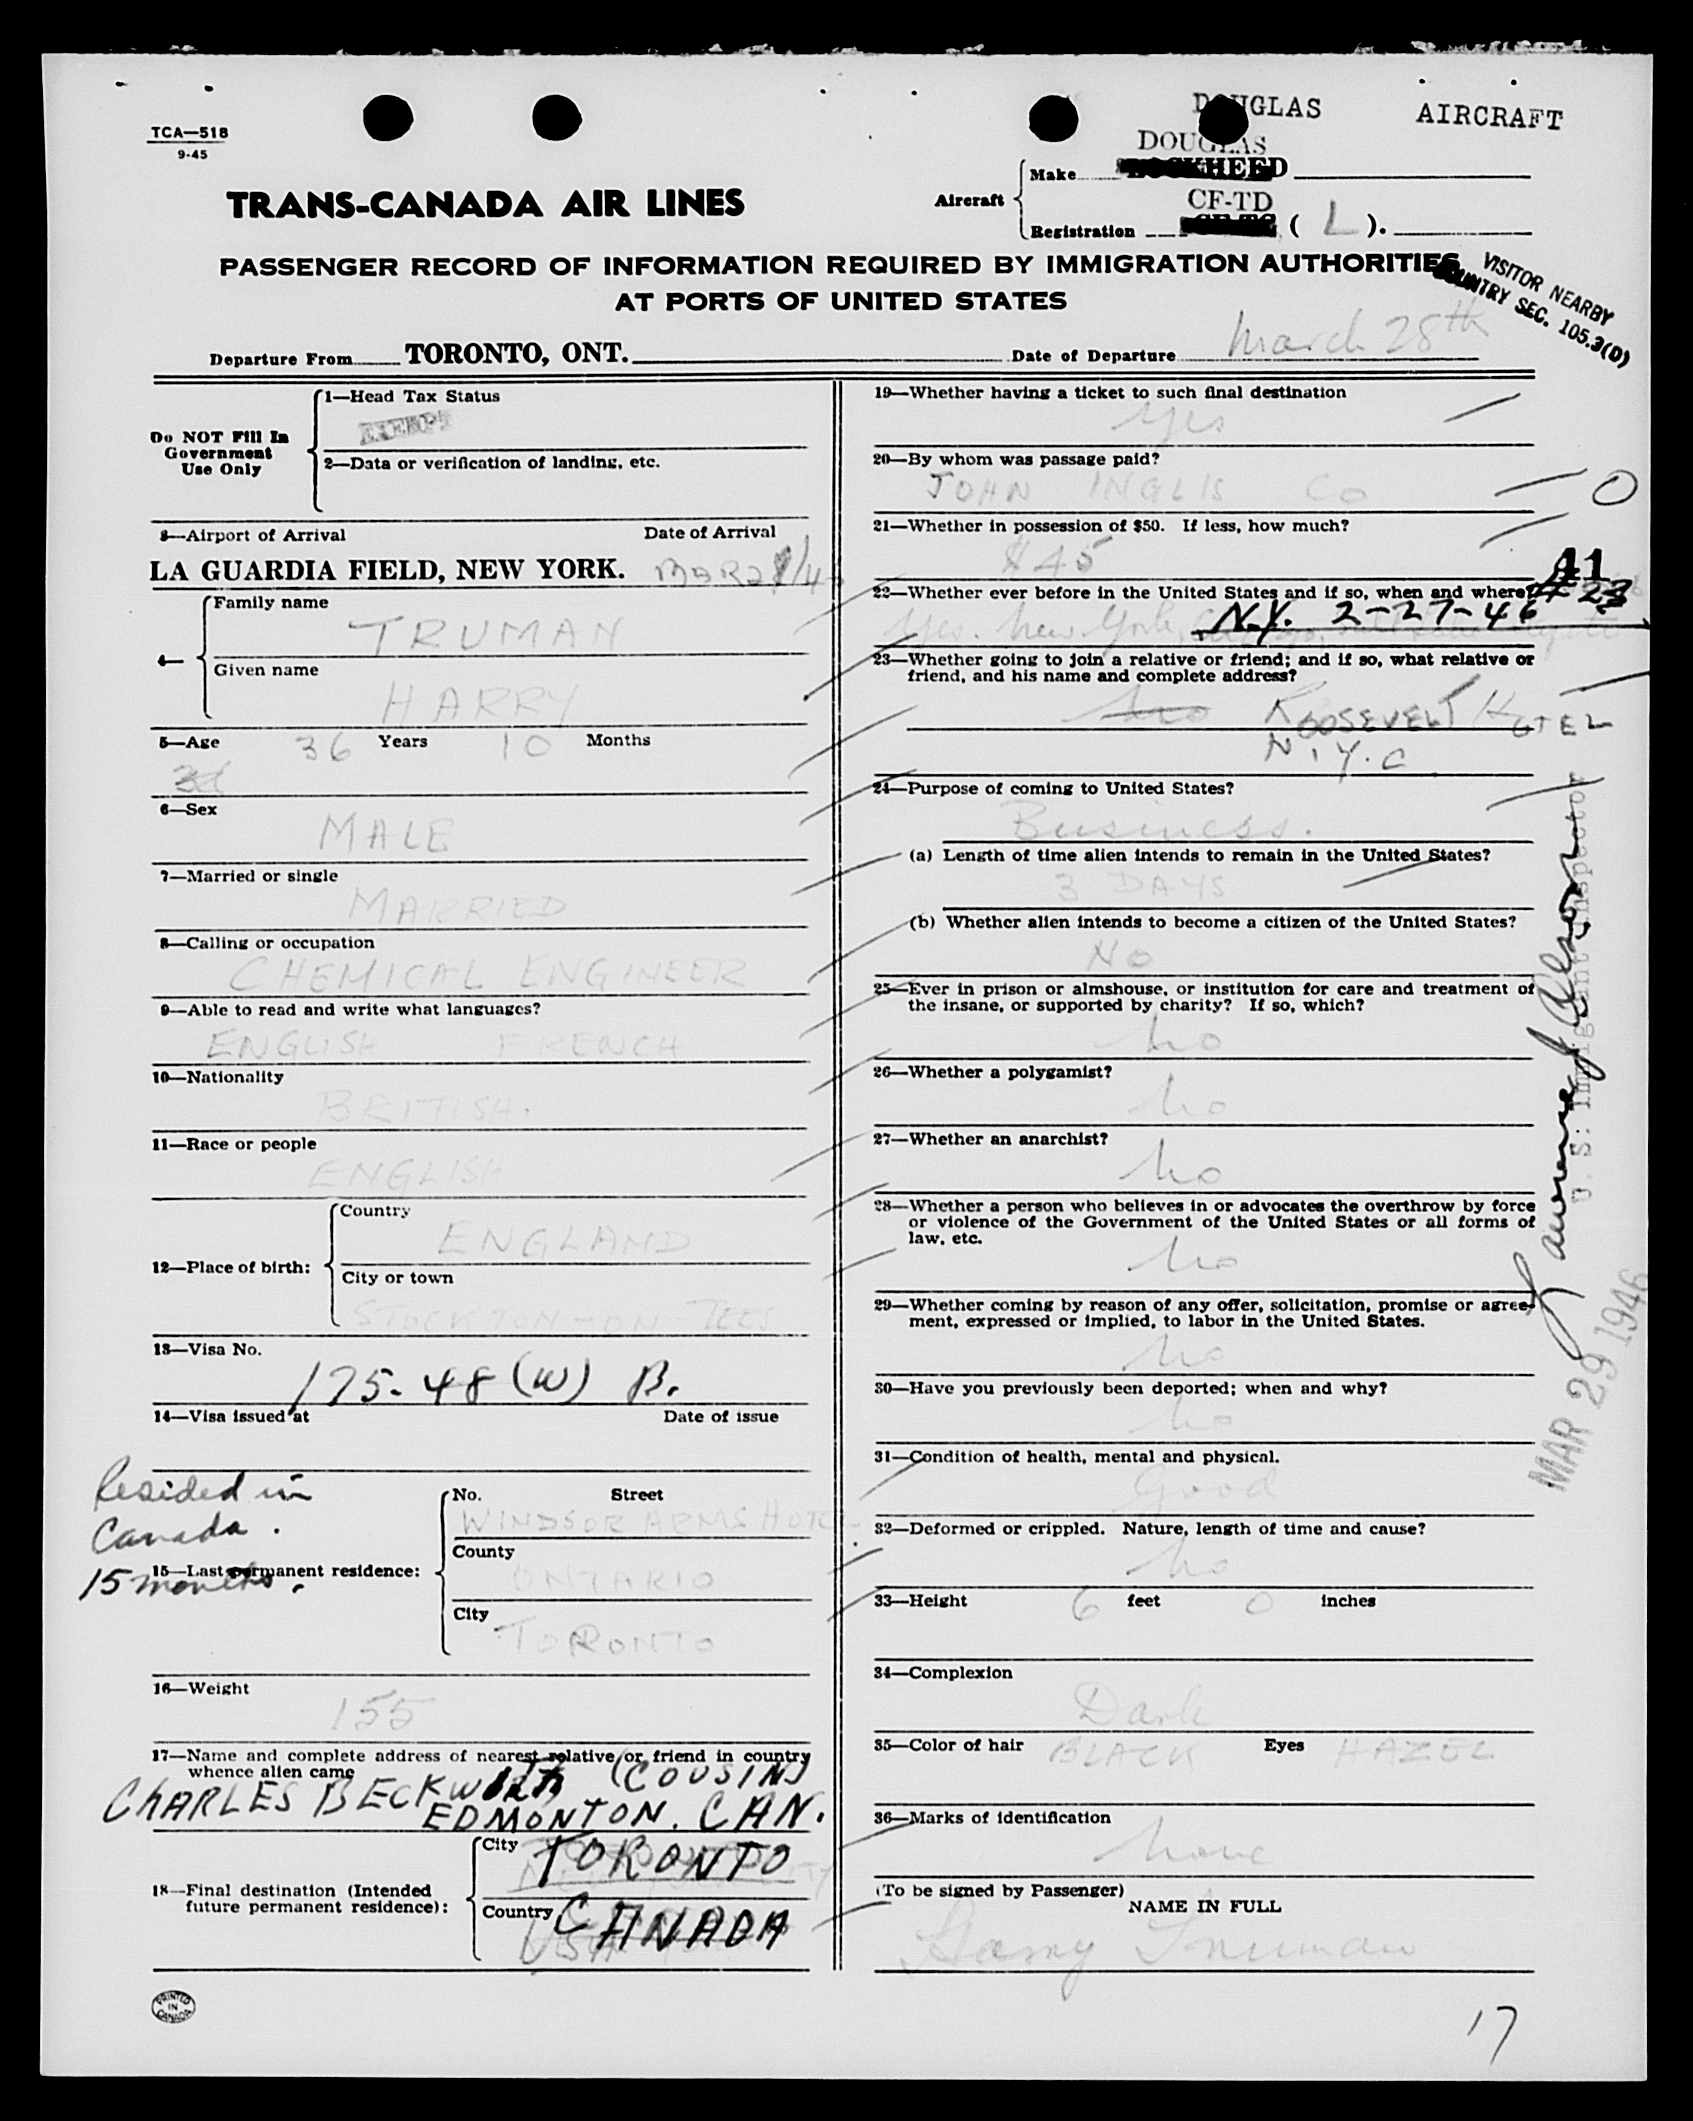 TCA—518
9-45
DOUGLAS AIRCRAFT
DOUGLAS
TRANS-CANADA AIR LINES
Aircraft
Make LOCKHEED
CF-TD
Registration CF-TC ( L ).
PASSENGER RECORD OF INFORMATION REQUIRED BY IMMIGRATION AUTHORITIES
AT PORTS OF UNITED STATES
VISITOR NEARBY
COUNTRY SEC. 105.3(D)
Departure From TORONTO, ONT. Date of Departure March 28th
Do NOT Fill In
Government
Use Only
1—Head Tax Status
EXEMPT
2—Data or verification of landing, etc.
3—Airport of Arrival Date of Arrival
LA GUARDIA FIELD, NEW YORK.
4—
Family name
TRUMAN
Given name
HARRY
5—Age 36 Years 10 Months
6—Sex
MALE
7—Married or single
MARRIED
8—Calling or occupation
CHEMICAL ENGINEER
9—Able to read and write what languages?
ENGLISH FRENCH
10—Nationality
BRITISH.
11—Race or people
ENGLISH
12—Place of birth:
Country
ENGLAND
City or town
STOCKTON-ON-TEES
13—Visa No.
175-48 (W) B.
14—Visa issued at Date of issue
Resided in
Canada.
15 months.
15—Last permanent residence:
No. Street
WINDSOR ARMS HOTEL
County
ONTARIO
City
TORONTO
16—Weight
155
17—Name and complete address of nearest relative or friend in country
whence alien came
CHARLES BECKWITH (COUSIN)
EDMONTON. CAN.
18—Final destination (Intended
future permanent residence):
City
TORONTO
Country
CANADA
USA
PRINTED
IN
CANADA
19—Whether having a ticket to such final destination
Yes
20—By whom was passage paid?
JOHN INGLIS CO
0
21—Whether in possession of $50. If less, how much?
$45
41
# 23
22—Whether ever before in the United States and if so, when and where?
Yes. New York,
N.Y. 2-27-46
23—Whether going to join a relative or friend; and if so, what relative or
friend, and his name and complete address?
no ROOSEVELT HOTEL
N.Y.C
24—Purpose of coming to United States?
Business.
(a) Length of time alien intends to remain in the United States?
3 DAYS
(b) Whether alien intends to become a citizen of the United States?
NO
25—Ever in prison or almshouse, or institution for care and treatment of
the insane, or supported by charity? If so, which?
no
26—Whether a polygamist?
no
27—Whether an anarchist?
no
28—Whether a person who believes in or advocates the overthrow by force
or violence of the Government of the United States or all forms of
law, etc.
no
29—Whether coming by reason of any offer, solicitation, promise or agree-
ment, expressed or implied, to labor in the United States.
no
30—Have you previously been deported; when and why?
no
31—Condition of health, mental and physical.
Good
32—Deformed or crippled. Nature, length of time and cause?
no
33—Height 6 feet 0 inches
34—Complexion
Dark
35—Color of hair BLACK Eyes HAZEL
36—Marks of identification
none
(To be signed by Passenger)
NAME IN FULL
Harry Truman
U. S. Immigrant Inspector
MAR 29 1946
17